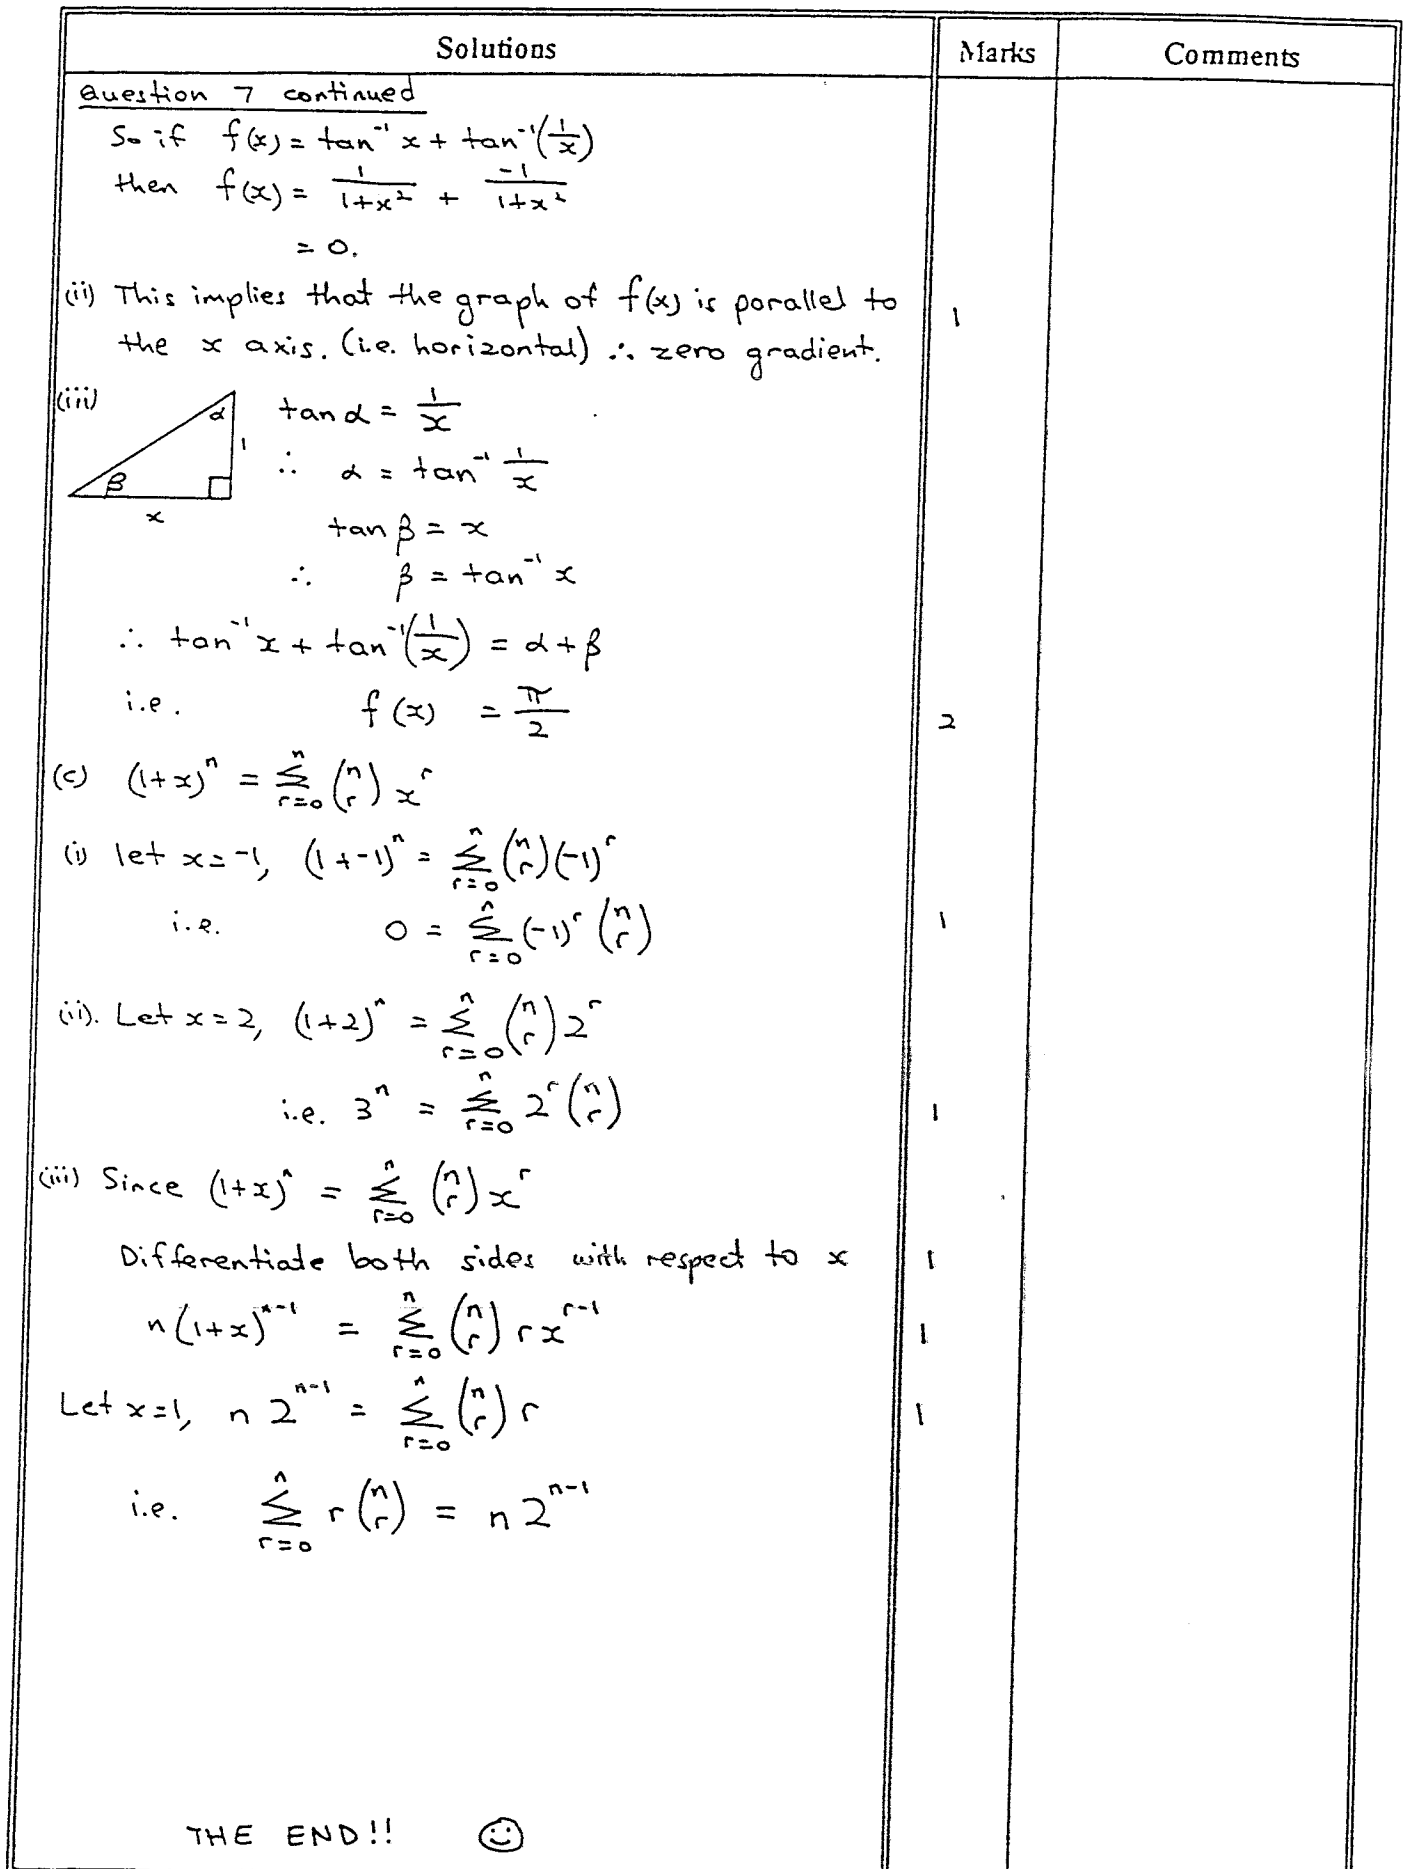 Solutions Marks Comments
Question 7 continued
So if f(x) = tan⁻¹ x + tan⁻¹(1/x)
then f(x) = 1/(1+x²) + -1/(1+x²)
= 0.
(ii) This implies that the graph of f(x) is parallel to 1
the x axis. (i.e. horizontal) ∴ zero gradient.
(iii) α 1 β x
tan α = 1/x
∴ α = tan⁻¹ 1/x
tan β = x
∴ β = tan⁻¹ x
∴ tan⁻¹ x + tan⁻¹(1/x) = α + β
i.e. f(x) = π/2 2
(c) (1+x)ⁿ = Σ_{r=0}^{n} (n r) xʳ
(i) let x = -1, (1 + -1)ⁿ = Σ_{r=0}^{n} (n r)(-1)ʳ
i.e. 0 = Σ_{r=0}^{n} (-1)ʳ (n r) 1
(ii). Let x = 2, (1+2)ⁿ = Σ_{r=0}^{n} (n r) 2ʳ
i.e. 3ⁿ = Σ_{r=0}^{n} 2ʳ (n r) 1
(iii) Since (1+x)ⁿ = Σ_{r=0}^{n} (n r) xʳ
Differentiate both sides with respect to x 1
n(1+x)ⁿ⁻¹ = Σ_{r=0}^{n} (n r) r xʳ⁻¹ 1
Let x=1, n 2ⁿ⁻¹ = Σ_{r=0}^{n} (n r) r 1
i.e. Σ_{r=0}^{n} r (n r) = n 2ⁿ⁻¹
THE END!! ☺